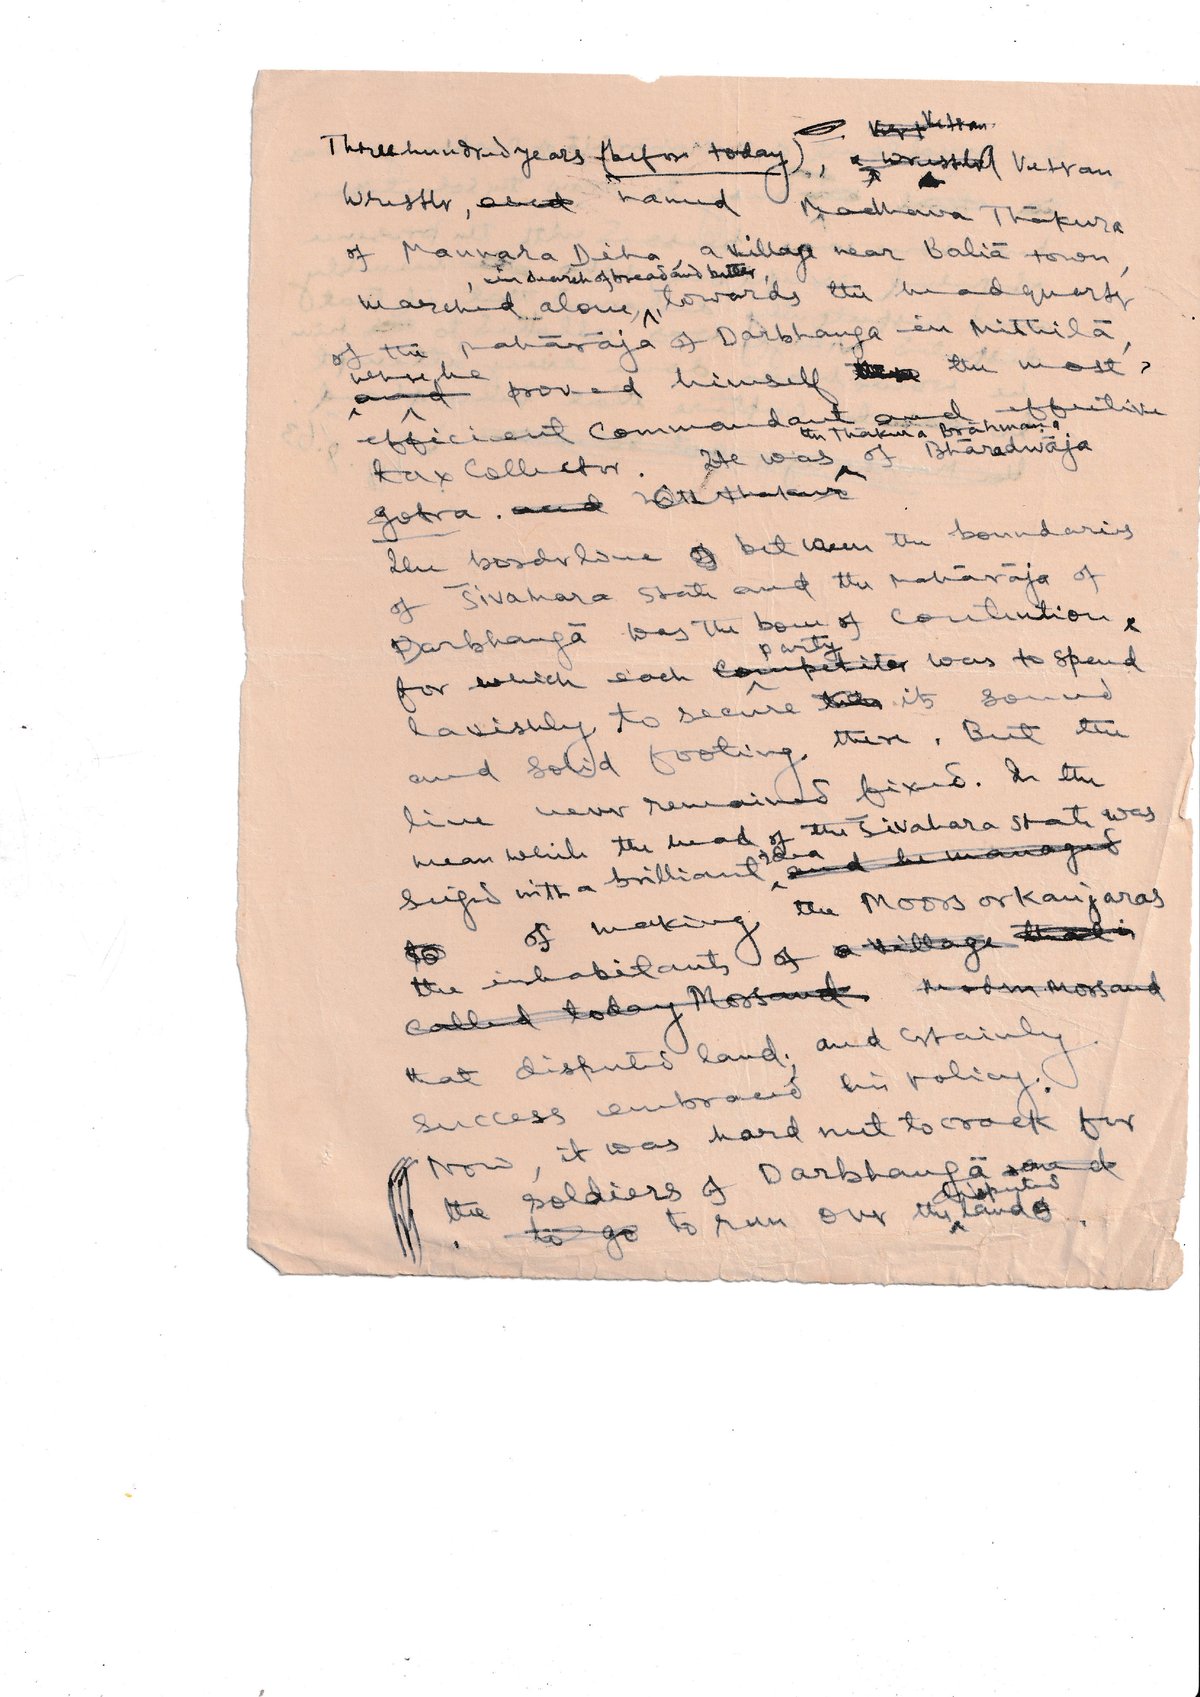 Three hundred years (before today), a wrestler Vetran Vetran
Wrestler, and named Madhava Thākura
of Mannara Diha, a village near Baliā town,
, in search of bread and butter,
marched alone, towards the headquarter
of the Mahārāja of Darbhanga in Mithilā,
where he
and proved himself the most
efficient Commandant and effective
tax Collector. He was of Bhāradwāja
the Thākura Brāhmaṇa
gotra. and
The borderline of between the boundaries
of Śivahara State and the Mahārāja of
Darbhangā was the bone of Contention
party
for which each Competitor was to spend
lavishly to secure it sound
and solid footing there. But the
line never remained fixed. In the
mean while the head of the Śivahara State was
seized with a brilliant idea and he managed
to of making the Moors or Kanjaras
the inhabitants of a village that is
called today Morsand. Modern Morsand
that disputed land, and certainly
success embraced his policy.
Now, it was hard nut to crack for
the soldiers of Darbhangā and
disputed
to go to run over the land.